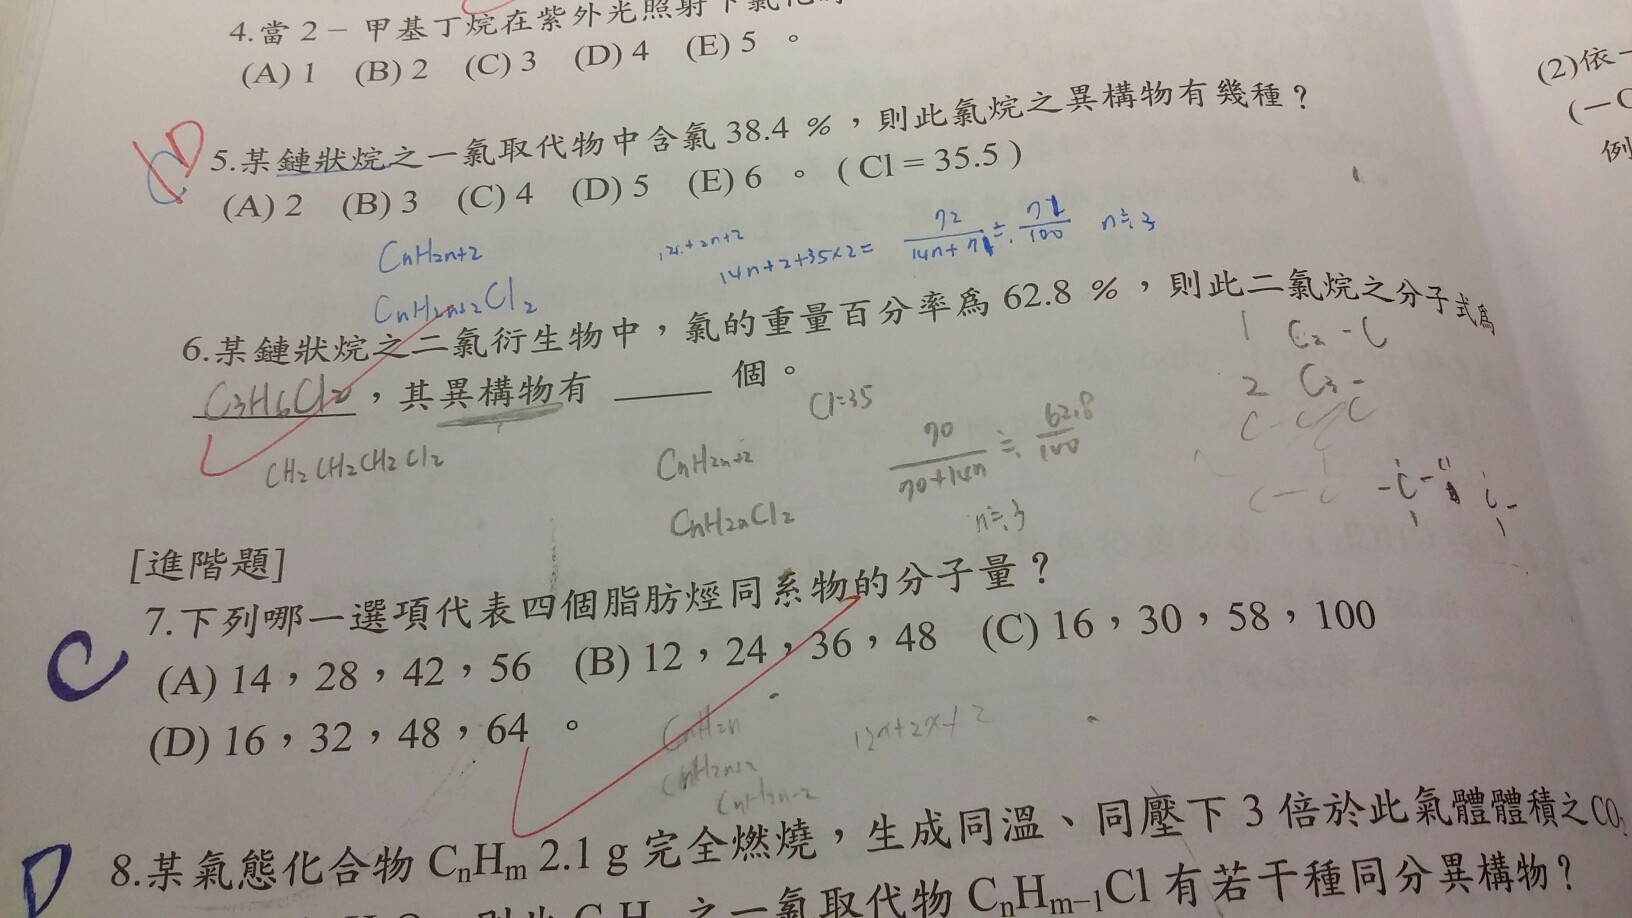 4.當2－甲基丁烷在紫外光照射下氯化時
(A) 1 (B) 2 (C) 3 (D) 4 (E) 5 。
D
5.某鏈狀烷之一氯取代物中含氯 38.4 %，則此氯烷之異構物有幾種？
(A) 2 (B) 3 (C) 4 (D) 5 (E) 6 。 ( Cl = 35.5 )
CnH2n+2
14n+2+35×2=
n≒3
6.某鏈狀烷之二氯衍生物中，氯的重量百分率為 62.8 %，則此二氯烷之分子式為
C3H6Cl2，其異構物有 ＿＿ 個。
Cl=35
CH2CH2CH2Cl2
CnH2n+2
70/70+14n ≒ 62.8/100
CnH2nCl2
n≒3
[進階題]
C
7.下列哪一選項代表四個脂肪烴同系物的分子量？
(A) 14，28，42，56 (B) 12，24，36，48 (C) 16，30，58，100
(D) 16，32，48，64 。
CnH2n
CnH2n+2
CnH2n-2
D
8.某氣態化合物 CnHm 2.1 g 完全燃燒，生成同溫、同壓下 3 倍於此氣體體積之CO2
之一氯取代物 CnHm−1Cl 有若干種同分異構物？
(2)依一
(－C
例